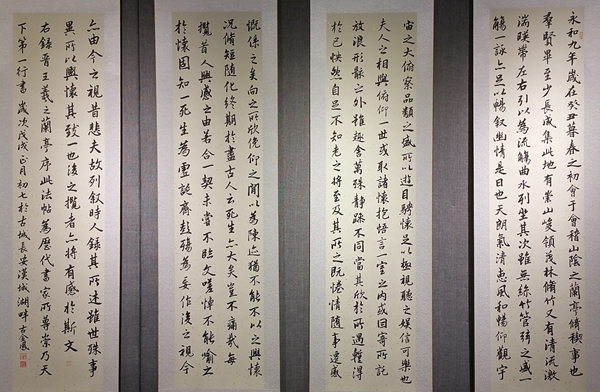 永和九年歲在癸丑暮春之初會于會稽山陰之蘭亭脩稧事也
羣賢畢至少長咸集此地有崇山峻領茂林脩竹又有清流激
湍暎帶左右引以為流觴曲水列坐其次雖無絲竹管弦之盛一
觴一詠亦足以暢叙幽情是日也天朗氣清惠風和暢仰觀宇
宙之大俯察品類之盛所以遊目騁懷足以極視聽之娛信可樂也
夫人之相與俯仰一世或取諸懷抱悟言一室之內或因寄所託
放浪形骸之外雖趣舍萬殊靜躁不同當其欣於所遇蹔得
於己怏然自足不知老之將至及其所之既惓情隨事遷感
慨係之矣向之所欣俛仰之閒以為陳迹猶不能不以之興懷
況脩短隨化終期於盡古人云死生亦大矣豈不痛哉每
攬昔人興感之由若合一契未嘗不臨文嗟悼不能喻之
於懷固知一死生為虛誕齊彭殤為妄作後之視今
亦由今之視昔悲夫故列叙時人錄其所述雖世殊事
異所以興懷其致一也後之攬者亦將有感於斯文
右錄晉王羲之蘭亭序此法帖為歷代書家所尊崇乃天
下第一行書 歲次戊戌正月初七於古城長安漢城湖畔